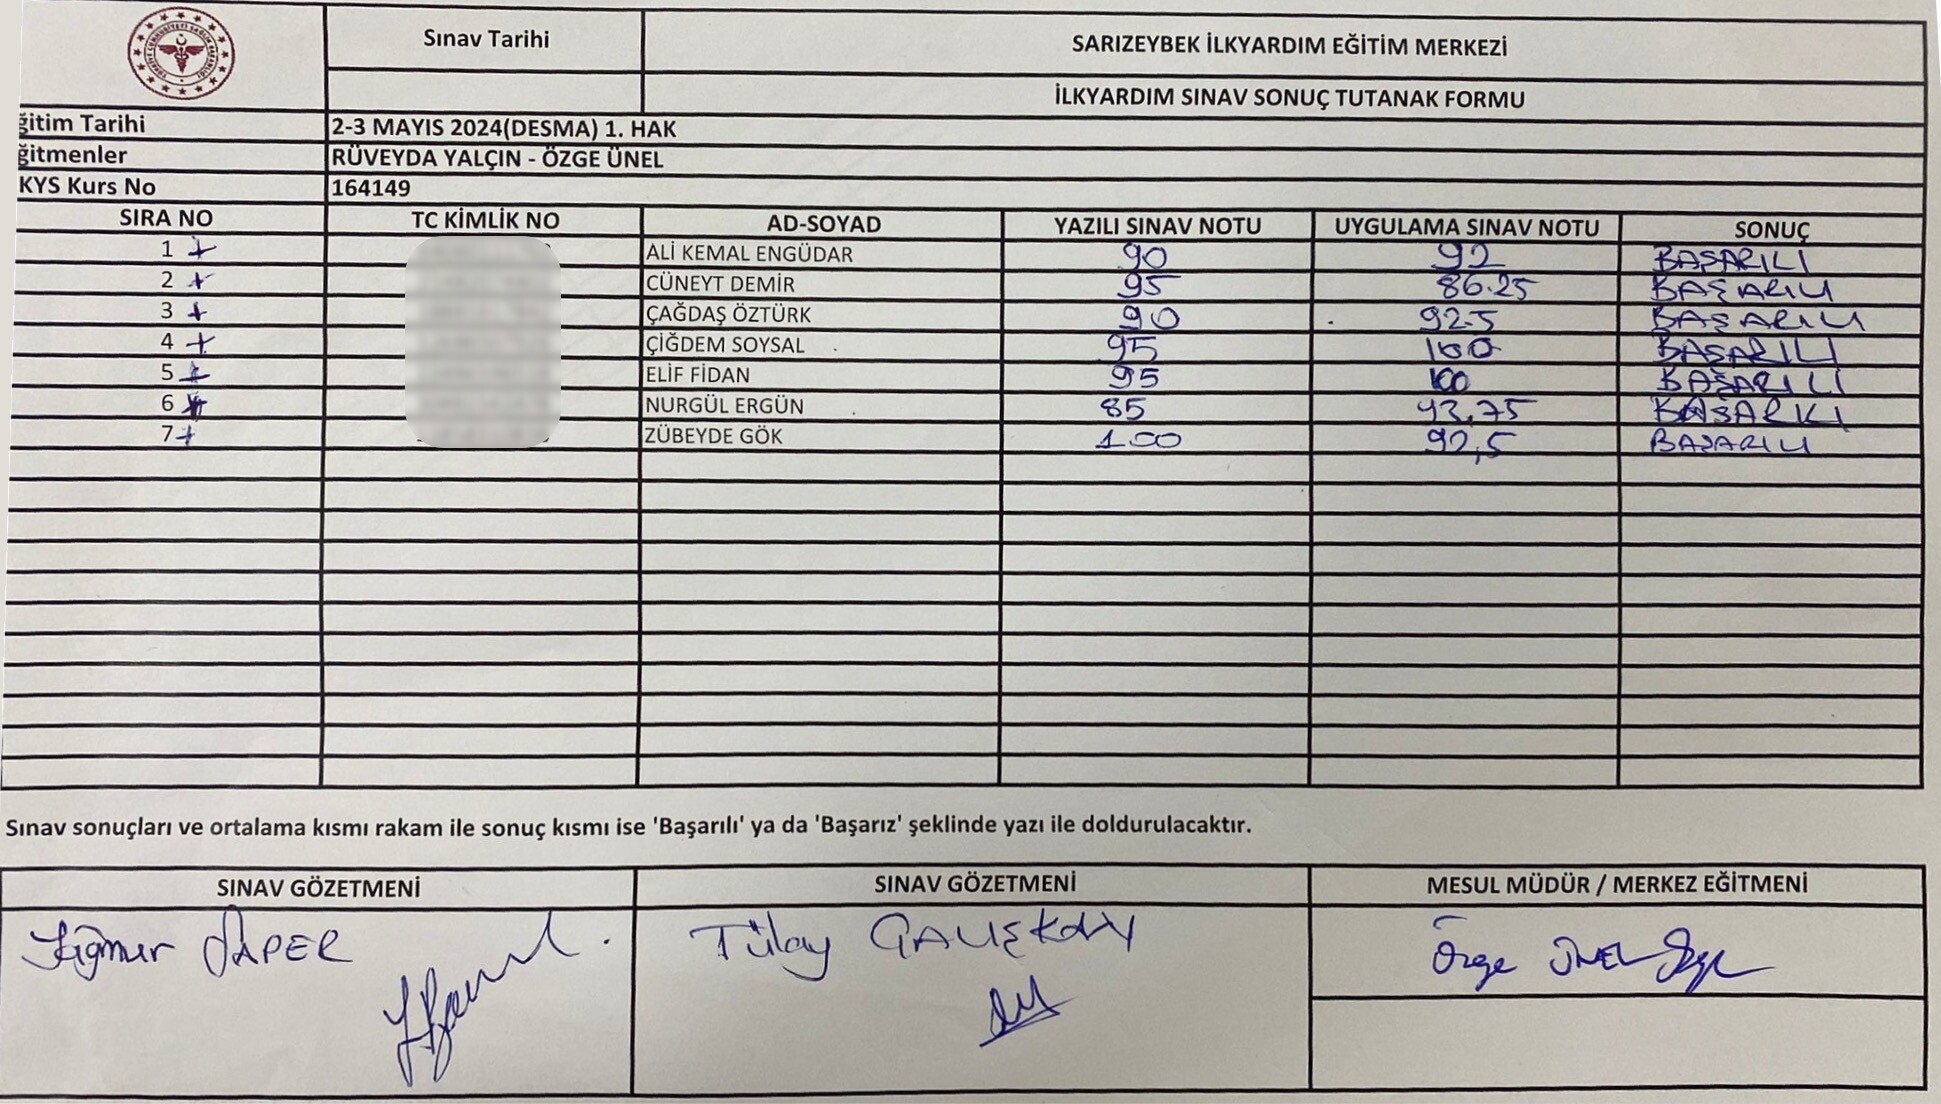 Sınav Tarihi
SARIZEYBEK İLKYARDIM EĞİTİM MERKEZİ
İLKYARDIM SINAV SONUÇ TUTANAK FORMU
ğitim Tarihi 2-3 MAYIS 2024(DESMA) 1. HAK
ğitmenler RÜVEYDA YALÇIN - ÖZGE ÜNEL
KYS Kurs No 164149
SIRA NO TC KİMLİK NO AD-SOYAD YAZILI SINAV NOTU UYGULAMA SINAV NOTU SONUÇ
1 + ALİ KEMAL ENGÜDAR 90 92 BAŞARILI
2 + CÜNEYT DEMİR 95 86.25 BAŞARILI
3 + ÇAĞDAŞ ÖZTÜRK 90 92.5 BAŞARILI
4 + ÇİĞDEM SOYSAL 95 100 BAŞARILI
5 + ELİF FİDAN 95 100 BAŞARILI
6 + NURGÜL ERGÜN 85 93.75 BAŞARILI
7 + ZÜBEYDE GÖK 100 92,5 BAŞARILI
Sınav sonuçları ve ortalama kısmı rakam ile sonuç kısmı ise 'Başarılı' ya da 'Başarız' şeklinde yazı ile doldurulacaktır.
SINAV GÖZETMENİ SINAV GÖZETMENİ MESUL MÜDÜR / MERKEZ EĞİTMENİ
Yağmur Tülay ÇALIŞKAN Özge ÜNEL